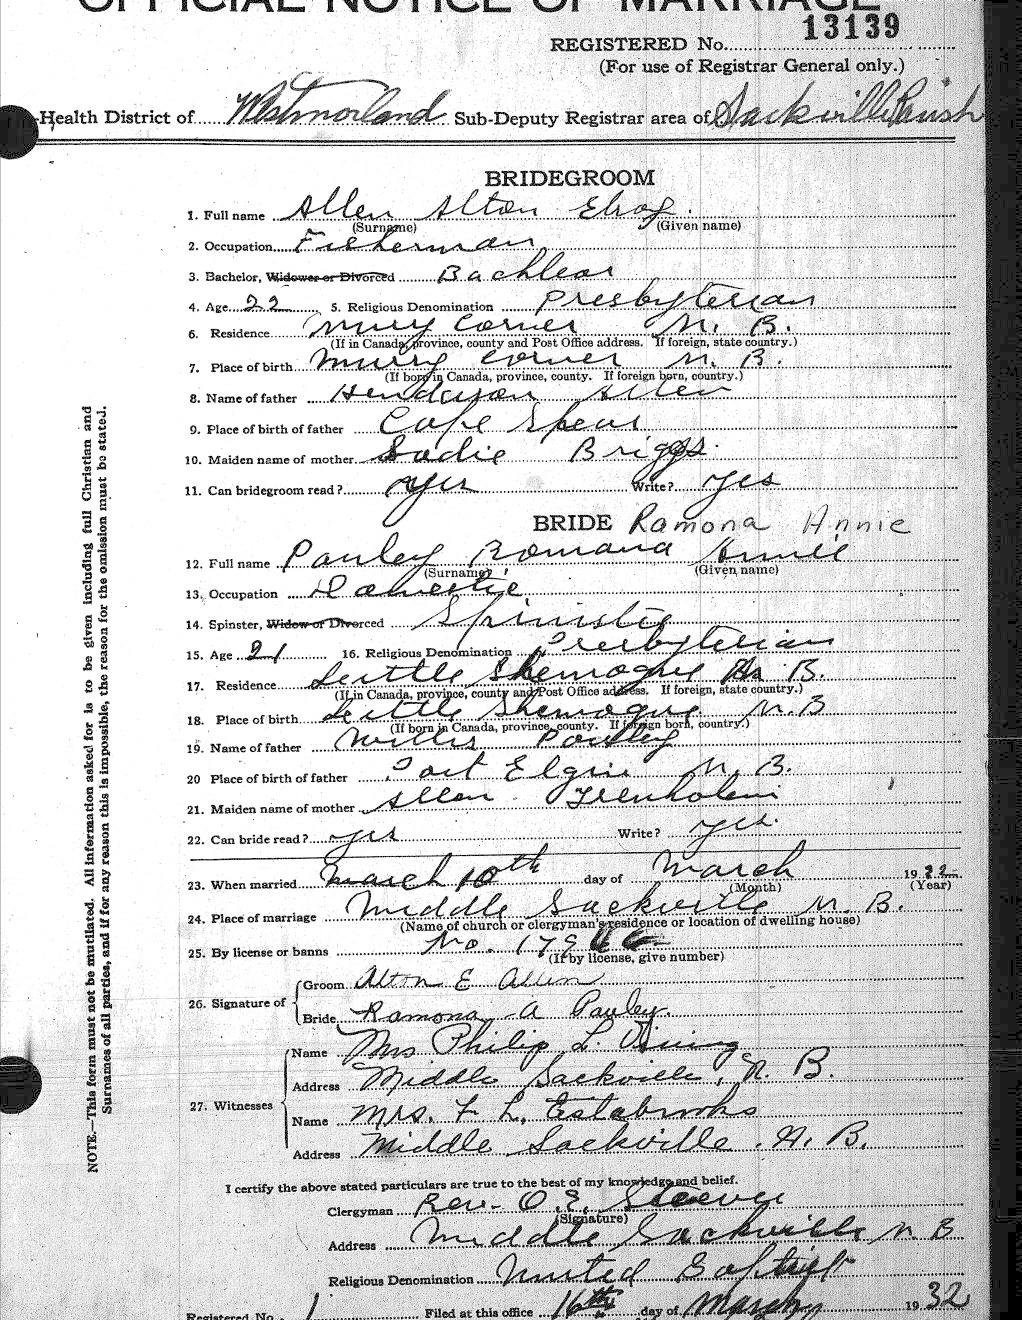 OFFICIAL NOTICE OF MARRIAGE
13139
REGISTERED No.
(For use of Registrar General only.)
Health District of Westmorland Sub-Deputy Registrar area of Sackville Parish
BRIDEGROOM
1. Full name Allen Alton Elroy
(Surname) (Given name)
2. Occupation Fisherman
3. Bachelor, Widower or Divorced Bachleor
4. Age 22 5. Religious Denomination Presbyterian
6. Residence Murry Corner N. B.
(If in Canada, province, county and Post Office address. If foreign, state country.)
7. Place of birth Murry Corner N. B.
(If born in Canada, province, county. If foreign born, country.)
8. Name of father Henderson Allen
9. Place of birth of father Cape Spear
10. Maiden name of mother Sadie Briggs
11. Can bridegroom read? yes Write? yes
BRIDE Ramona Annie
12. Full name Pauley Romana Annie
(Surname) (Given name)
13. Occupation Domestic
14. Spinster, Widow or Divorced Spinster
15. Age 21 16. Religious Denomination Presbyterian
17. Residence Little Shemogue N. B.
(If in Canada, province, county and Post Office address. If foreign, state country.)
18. Place of birth Little Shemogue N. B
(If born in Canada, province, county. If foreign born, country.)
19. Name of father Willis Pauley
20 Place of birth of father Port Elgin N. B.
21. Maiden name of mother Allen Trenholm
22. Can bride read? yes Write? yes.
23. When married March 10th day of March 1932
(Month) (Year)
24. Place of marriage Middle Sackville N. B.
(Name of church or clergyman's residence or location of dwelling house)
25. By license or banns No. 179
(If by license, give number)
26. Signature of
Groom Alton E Allen
Bride Ramona A Pauley.
27. Witnesses
Name Mrs Philip L.
Address Middle Sackville, N. B.
Name Mrs. F. L. Estabrooks
Address Middle Sackville. N. B.
I certify the above stated particulars are true to the best of my knowledge and belief.
Clergyman Rev. O. E. Steeves
(Signature)
Address Middle Sackville N B
Religious Denomination United Baptist
Registered No. 1 Filed at this office 16th day of March 1932
NOTE.—This form must not be mutilated. All information asked for is to be given including full Christian and
Surnames of all parties, and if for any reason this is impossible, the reason for the omission must be stated.